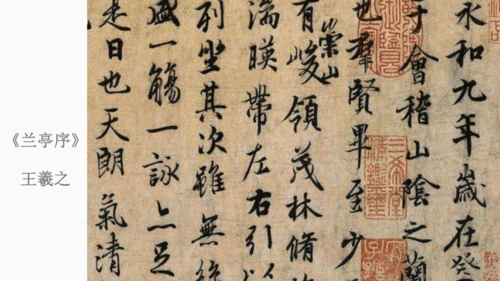 《兰亭序》
王羲之
永和九年歲在癸
于會稽山陰之蘭
也羣賢畢至少
有崇山峻領茂林脩
湍暎帶左右引以
列坐其次雖無絲
盛一觴一詠亦足
是日也天朗氣清